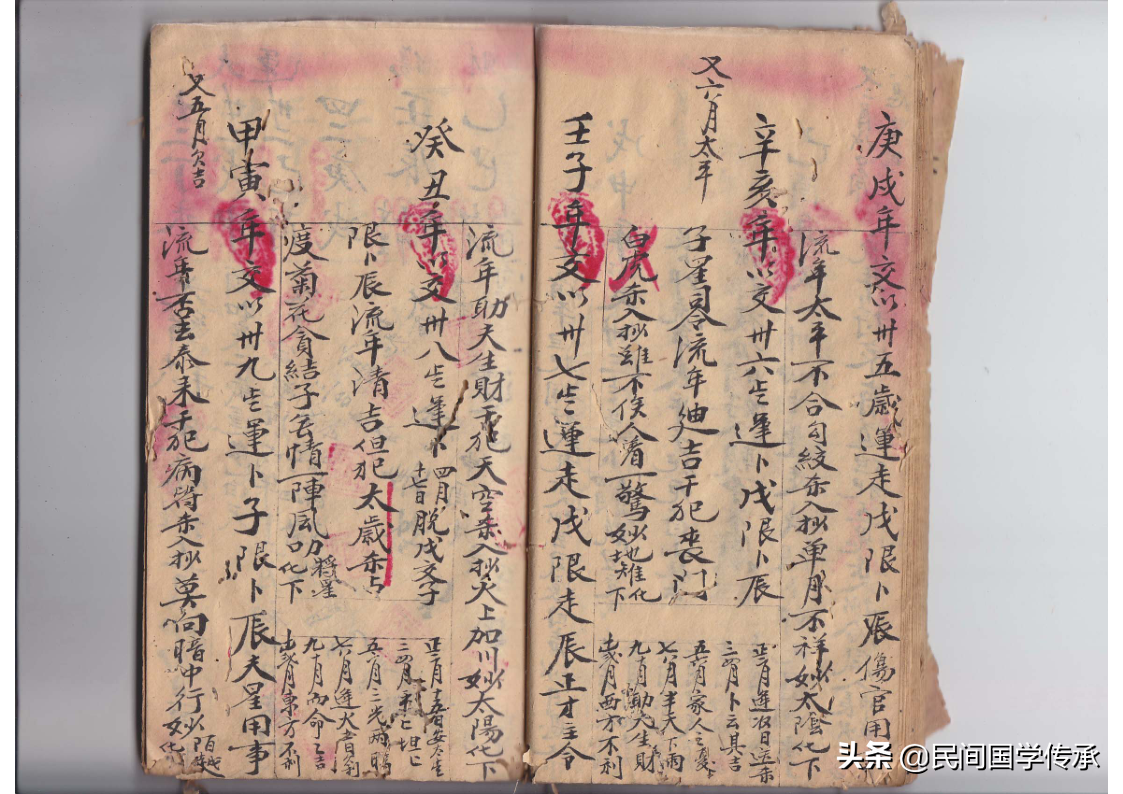 庚戌年交以卅五歲運走戌限卜辰傷官用
流年太平不合勾絞杀入抄单月不祥妙太陰化下
辛亥年以交卅六岁運卜戌限卜辰
正二月進
三四月卜云其吉
五六月家人之憂
七八月半天下雨
九十月勤人生財
西方不利
又六月太平
子星司令流年迪吉干犯丧门
白虎杀入抄雖不侯人看一驚妙地雉化下
壬子年交以卅七岁運走戌限走辰正才主令
流年助天生財干犯天空杀入抄火上加川妙太陽化下
癸丑年以交卅八岁運卜
四月
十七日
脫戌交子
限卜辰流年清吉但犯太歲杀占
度菊花貪結子無情一陣風力
將星
化下
正二月
三四月
五六月三光
七八月進火者
九十月
東方不利
甲寅年交以卅九岁運卜子限卜辰夫星用事
又五月欠吉
流年否去泰来干犯病符杀入抄莫向暗中行妙
头条 @民间国学传承